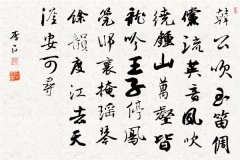 韓公吹玉笛倜
儻流英音風吹
繞鍾山萬壑皆
龍吟王子停鳳
管師襄掩瑤琴
餘韻度江去天
涯安可尋